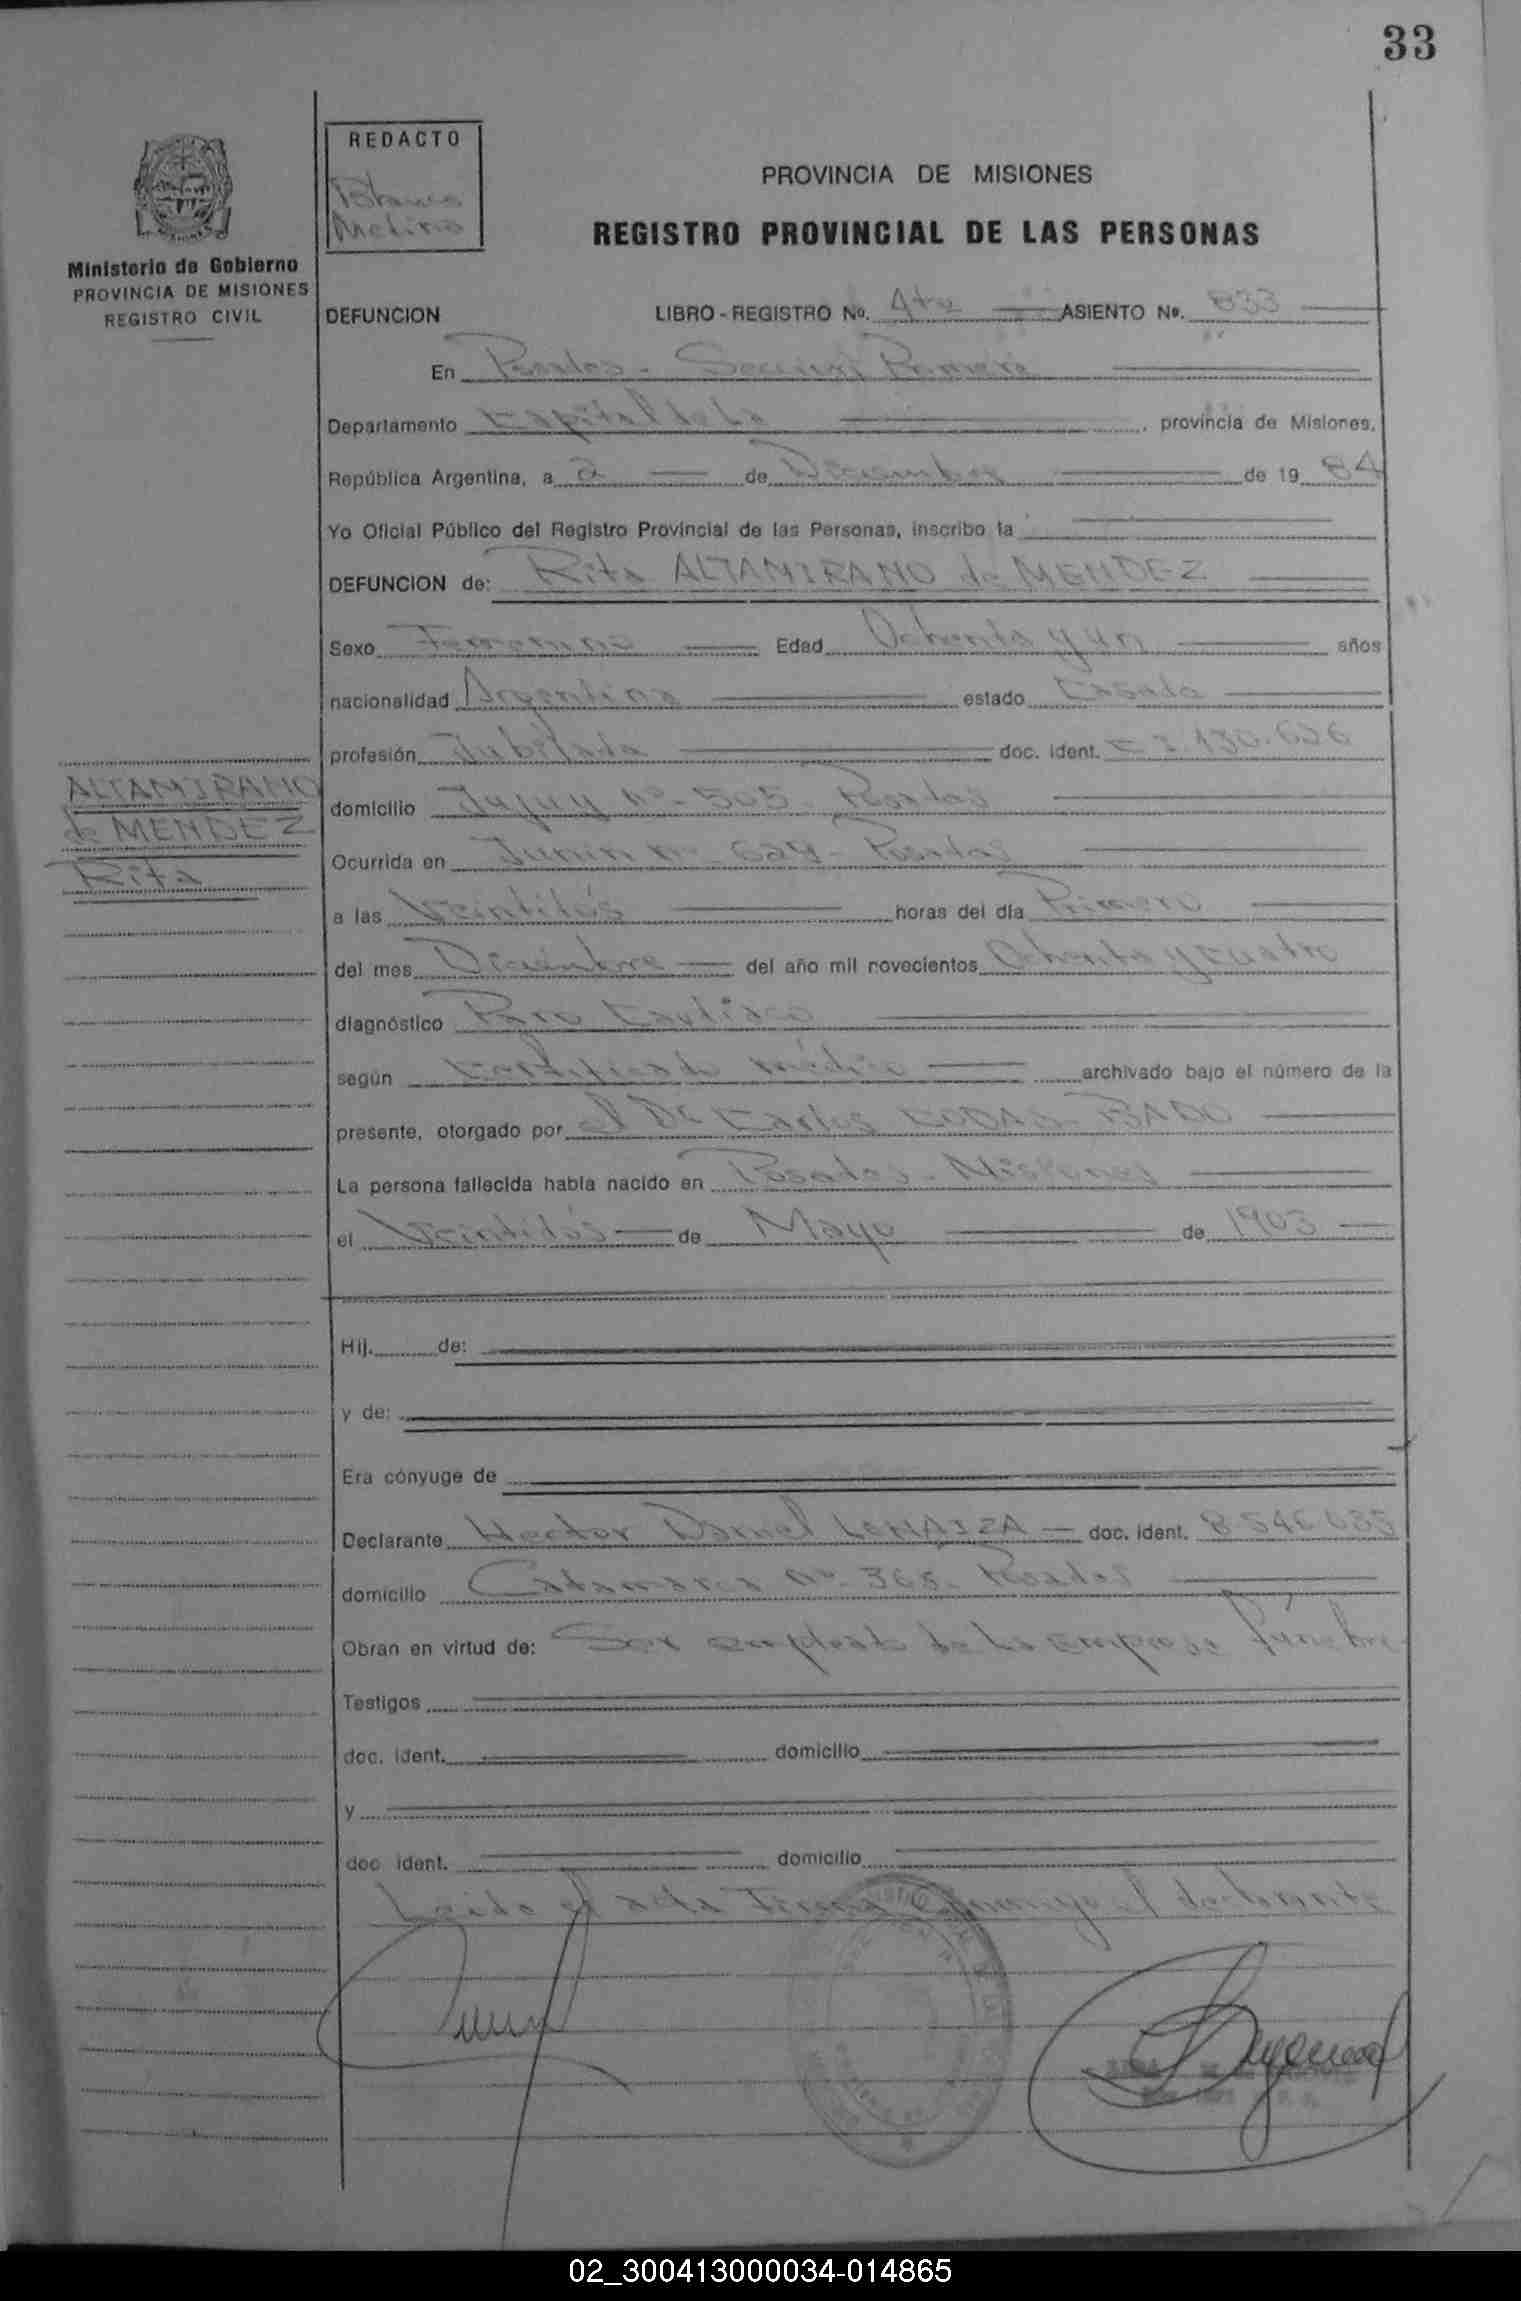 33
REDACTO
Blanca
Molina
PROVINCIA DE MISIONES
REGISTRO PROVINCIAL DE LAS PERSONAS
Ministerio de Gobierno
PROVINCIA DE MISIONES
REGISTRO CIVIL
DEFUNCION LIBRO - REGISTRO No. 4to ASIENTO No. 833
En Posadas - Sección Primera
Departamento Capital de la , provincia de Misiones,
República Argentina, a 2 de Diciembre de 19 84
Yo Oficial Público del Registro Provincial de las Personas, inscribo la
DEFUNCION de: Rita ALTAMIRANO de MENDEZ
Sexo Femenino Edad Ochenta y un años
nacionalidad Argentina estado Casada
profesión Jubilada doc. ident.
ALTAMIRANO
de MENDEZ
Rita
domicilio Jujuy Nº 505 Posadas
Ocurrida en Junin Nº Posadas
a las Veintidós horas del día Primero
del mes Diciembre del año mil novecientos Ochenta y cuatro
diagnóstico Paro Cardíaco
según Certificado médico archivado bajo el número de la
presente, otorgado por el Dr Carlos
La persona fallecida había nacido en Posadas - Misiones
el Veintidós de Mayo de 1903
Hij. de:
y de:
Era cónyuge de
Declarante Hector Daniel doc. ident. 8.546.
domicilio Catamarca Nº 365 - Posadas
Obran en virtud de: Ser empleado de la empresa fúnebre
Testigos
doc. ident. domicilio
y
doc ident. domicilio
Leida el acta Firma Conmigo el declarante
02_300413000034-014865